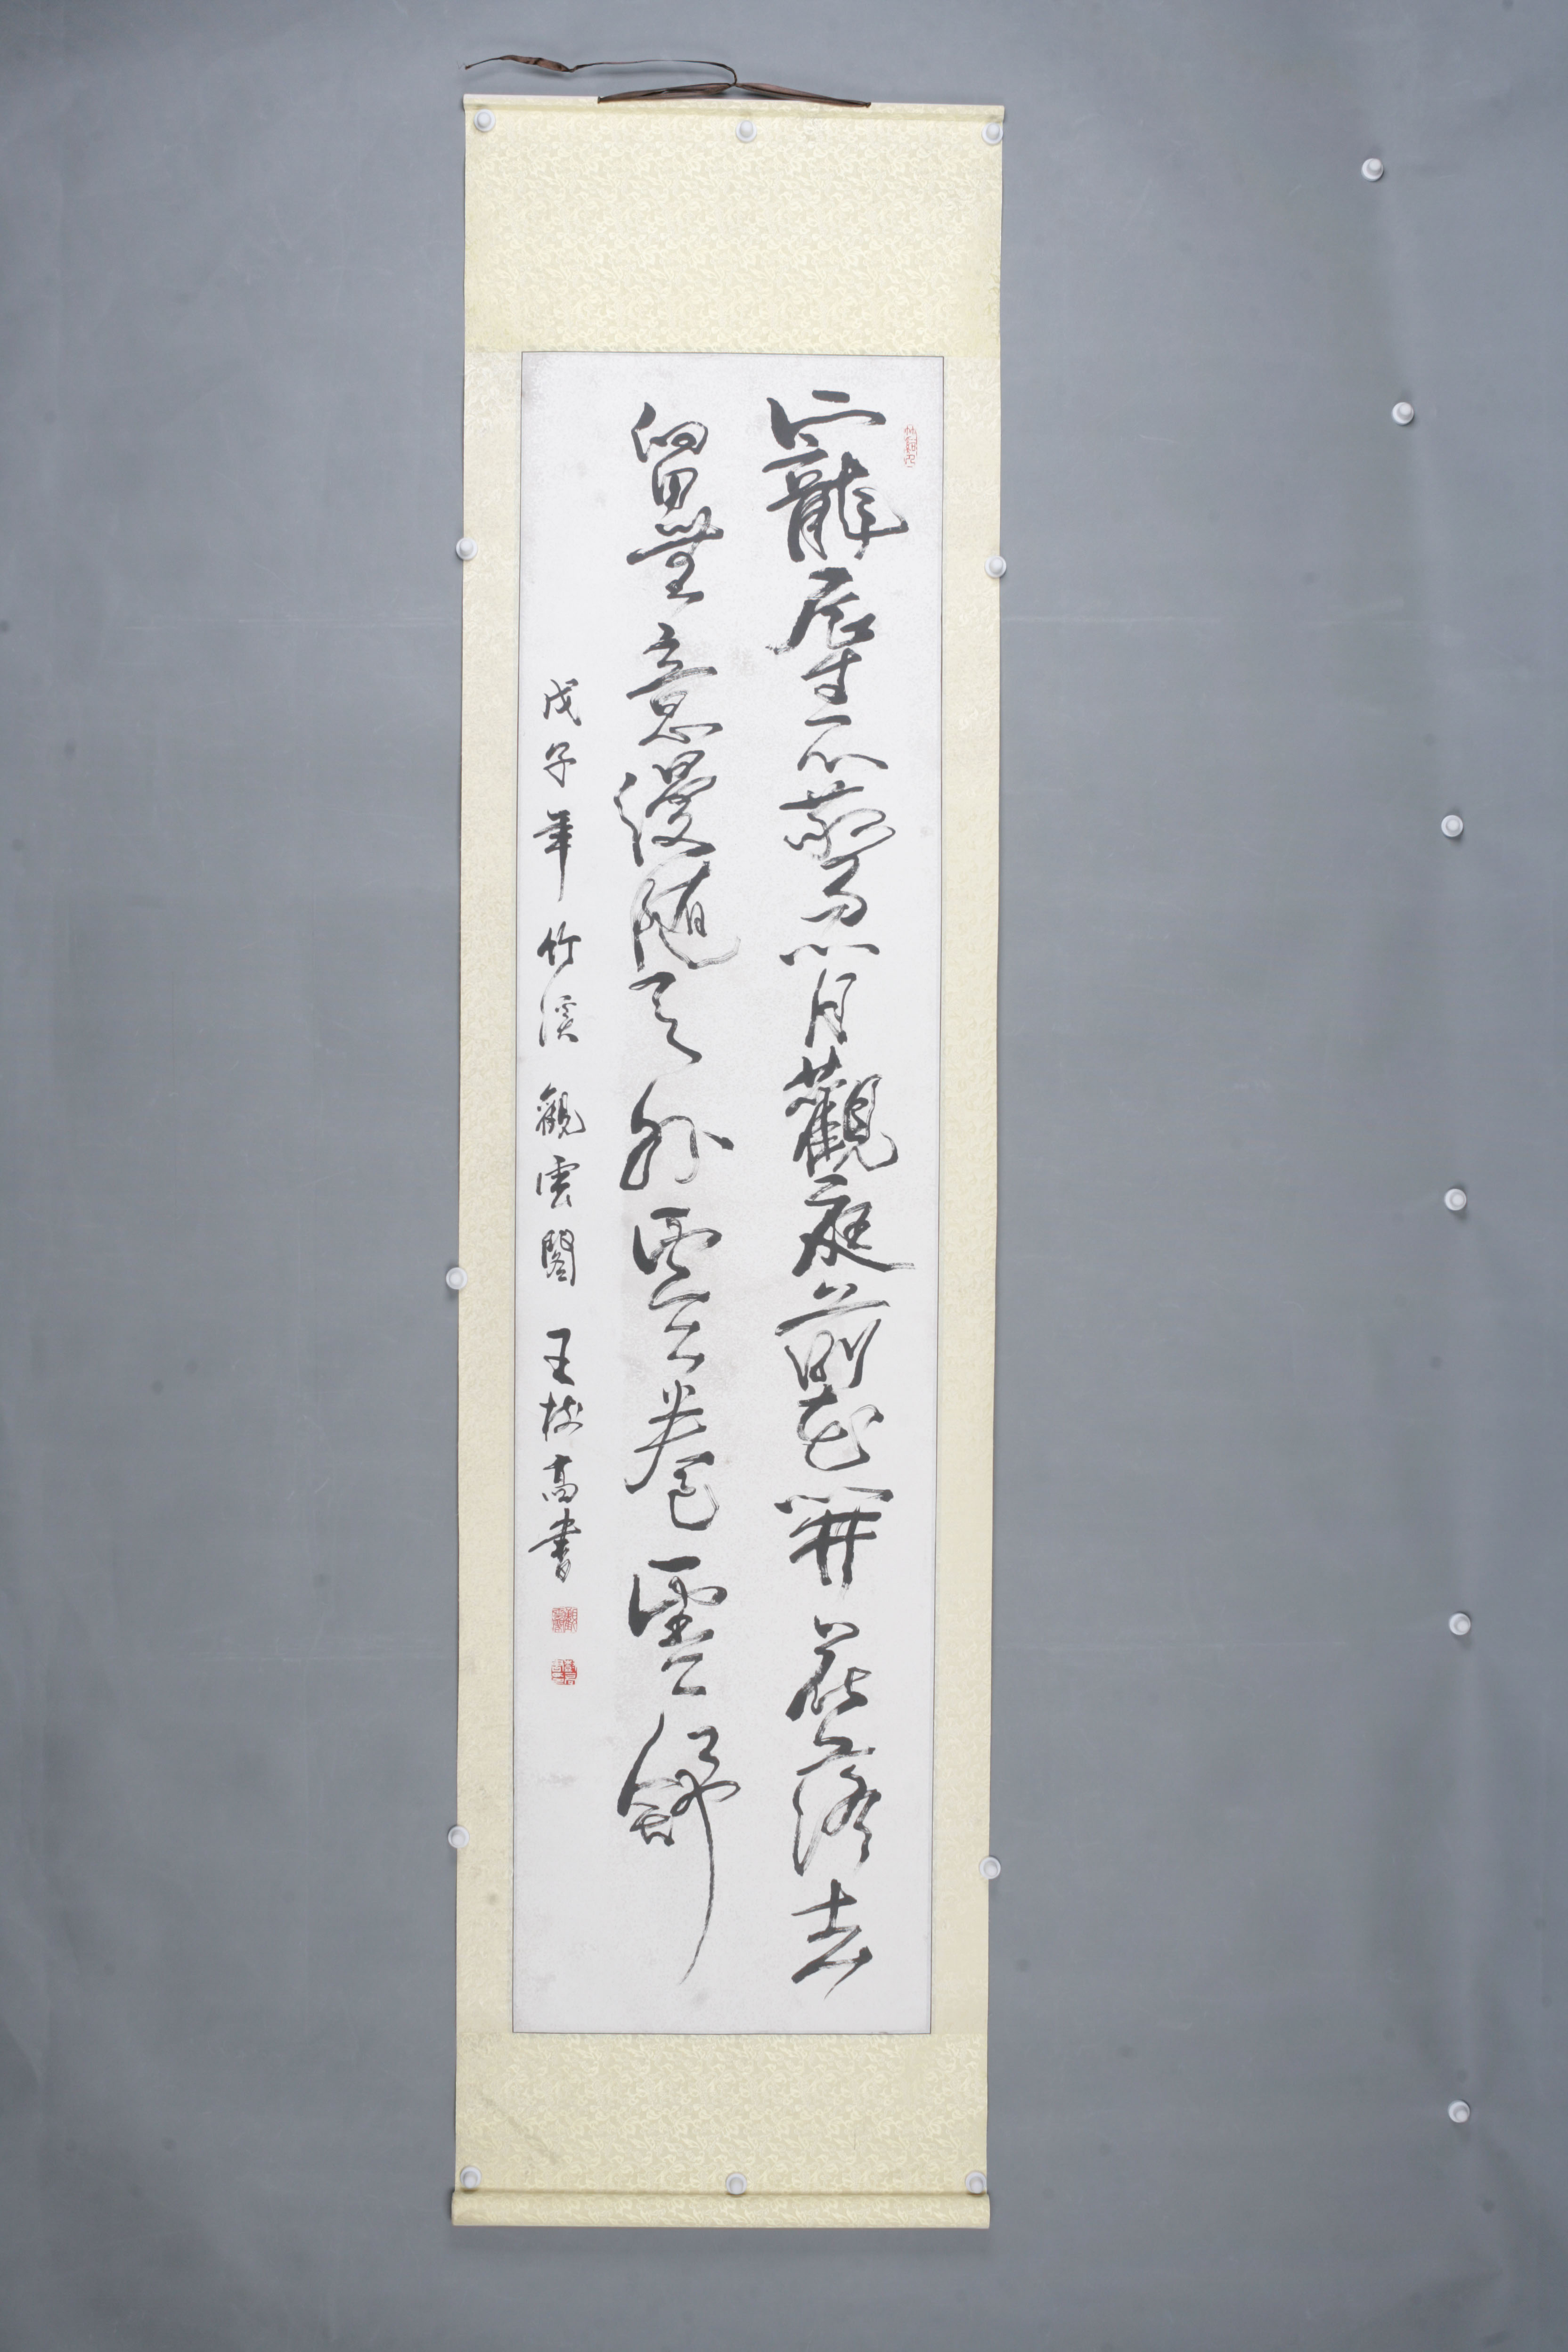 寵辱不驚閒看庭前花開花落去
留無意漫隨天外雲卷雲舒
戊子年竹溪觀雲閣王樹高書